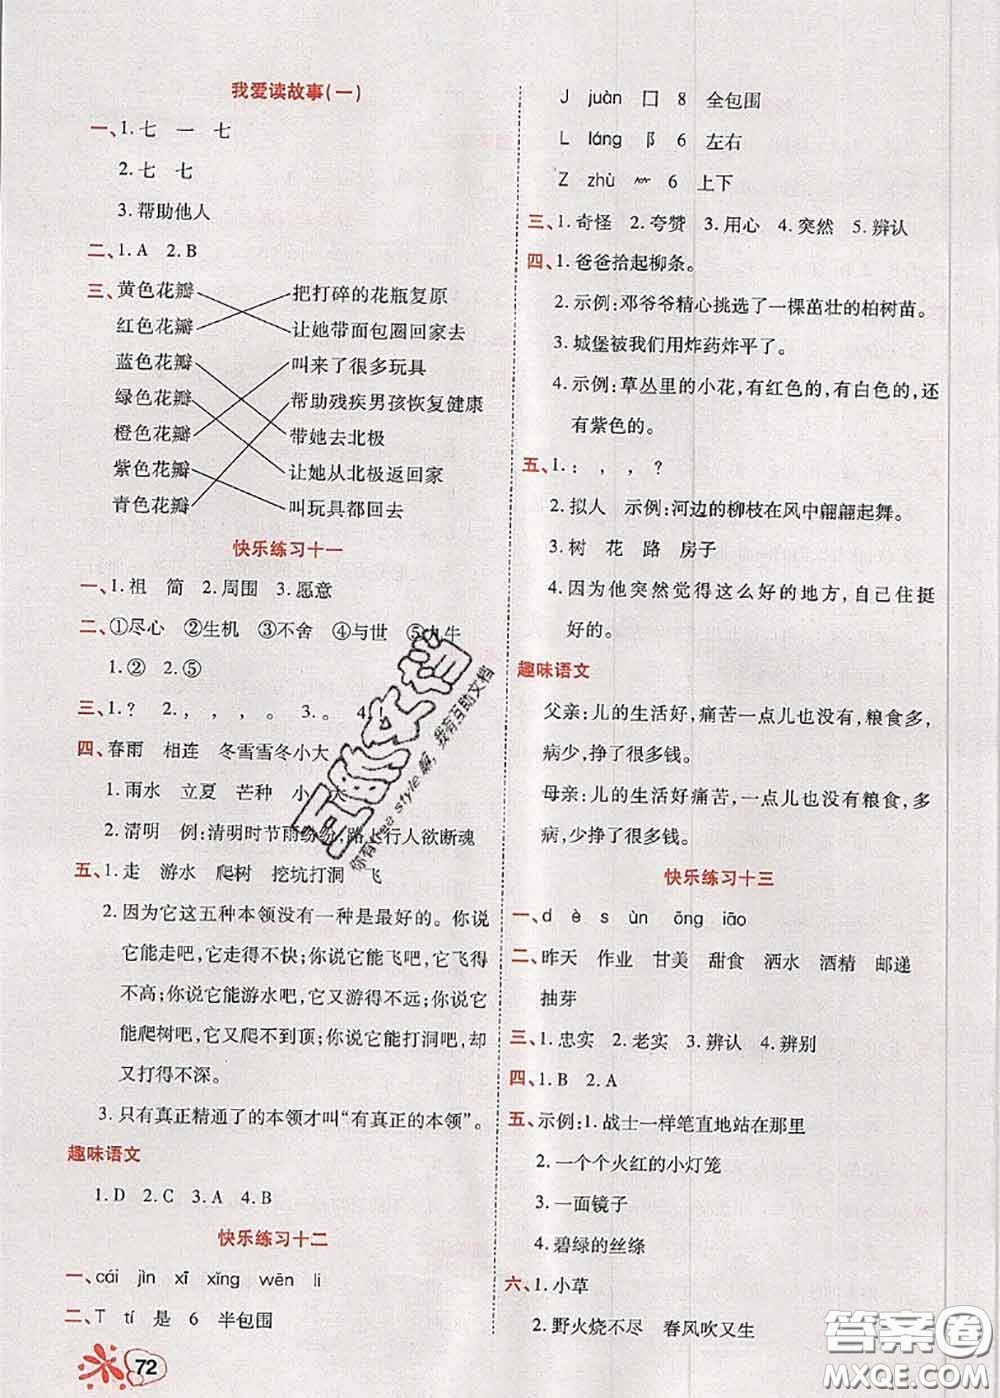 我爱读故事(一)
一、1. 七 一 七
2. 七 七
3. 帮助他人
二、1. A 2. B
三、黄色花瓣 把打碎的花瓶复原
红色花瓣 让她带面包圈回家去
蓝色花瓣 叫来了很多玩具
绿色花瓣 帮助残疾男孩恢复健康
橙色花瓣 带她去北极
紫色花瓣 让她从北极返回家
青色花瓣 叫玩具都回去
快乐练习十一
一、1. 祖 简 2. 周围 3. 愿意
二、①尽心 ②生机 ③不舍 ④与世 ⑤九牛
1. ② 2. ⑤
三、1. ? 2. , , 。 3. 。 4.
四、春雨 相连 冬雪雪冬小大
1. 雨水 立夏 芒种 小
2. 清明 例:清明时节雨纷纷,路上行人欲断魂
五、1. 走 游水 爬树 挖坑打洞 飞
2. 因为它这五种本领没有一种是最好的。你说
它能走吧,它走得不快;你说它能飞吧,它飞得
不高;你说它能游水吧,它又游得不远;你说它
能爬树吧,它又爬不到顶;你说它能打洞吧,却
又打得不深。
3. 只有真正精通了的本领才叫“有真正的本领”。
趣味语文
1. D 2. C 3. A 4. B
快乐练习十二
一、cái jìn xī xǐng wēn li
二、T tí 是 6 半包围
72
J juàn 囗 8 全包围
L láng 阝 6 左右
Z zhù 6 上下
三、1. 奇怪 2. 夸赞 3. 用心 4. 突然 5. 辨认
四、1. 爸爸拾起柳条。
2. 示例:邓爷爷精心挑选了一棵茁壮的柏树苗。
3. 城堡被我们用炸药炸平了。
4. 示例:草丛里的小花,有红色的,有白色的,还
有紫色的。
五、1. : , , ?
2. 拟人 示例:河边的柳枝在风中翩翩起舞。
3. 树 花 路 房子
4. 因为他突然觉得这么好的地方,自己住挺
好的。
趣味语文
父亲:儿的生活好,痛苦一点儿也没有,粮食多,
病少,挣了很多钱。
母亲:儿的生活好痛苦,一点儿也没有粮食,多
病,少挣了很多钱。
快乐练习十三
一、d è s ùn ōng iāo
二、昨天 作业 甘美 甜食 洒水 酒精 邮递
抽芽
三、1. 忠实 2. 老实 3. 辨认 4. 辨别
四、1. B 2. A
五、示例:1. 战士一样笔直地站在那里
2. 一个个火红的小灯笼
3. 一面镜子
4. 碧绿的丝绦
六、1. 小草
2. 野火烧不尽 春风吹又生
答案圈
MXQE.COM